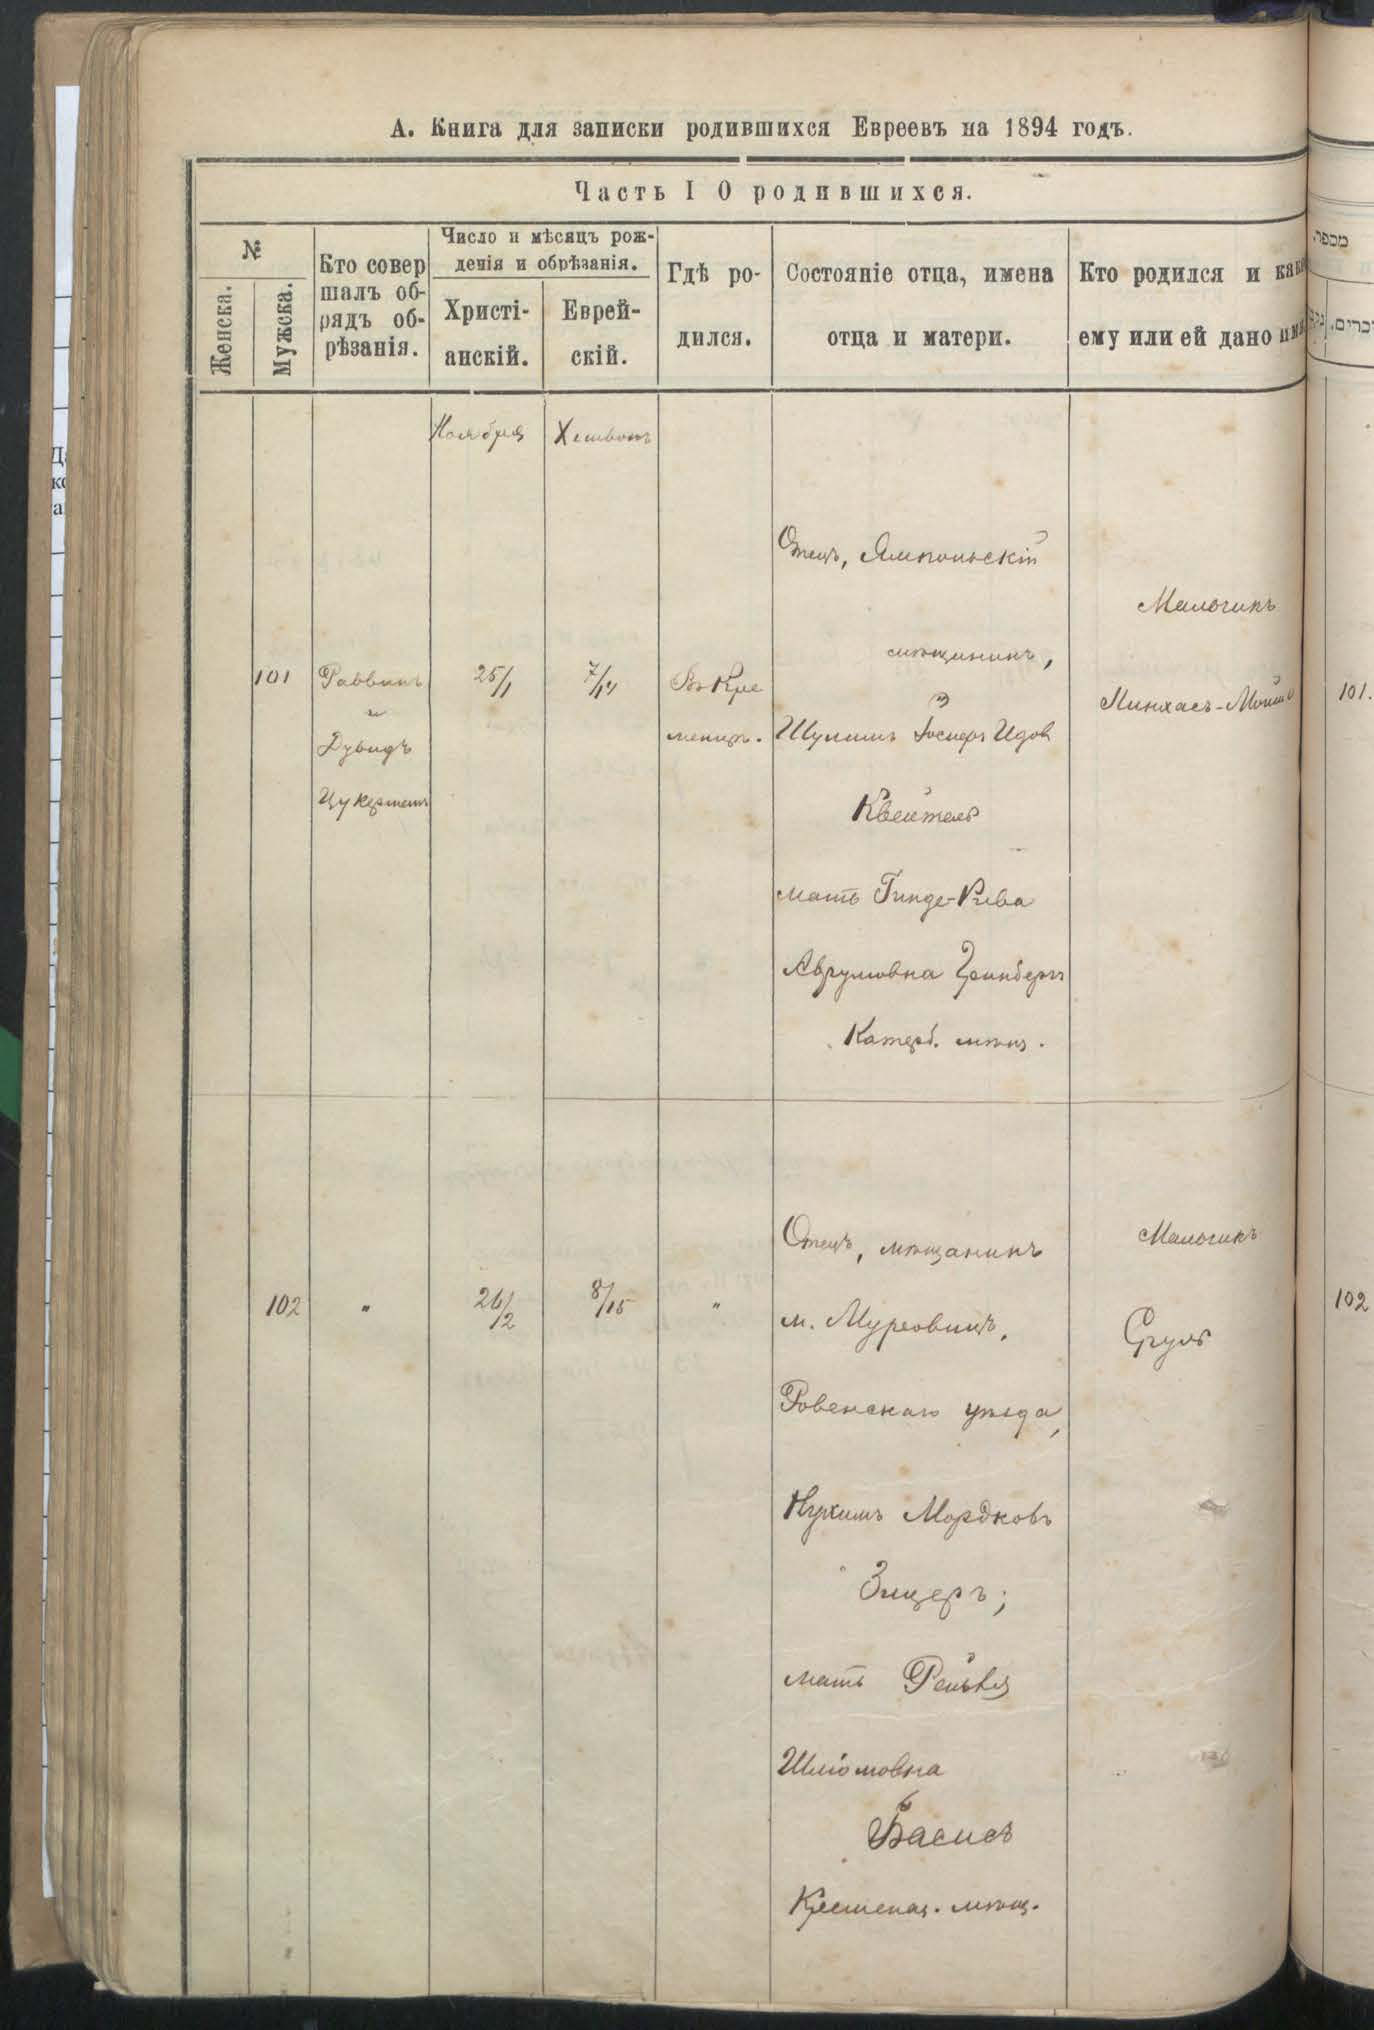 А. Книга для записки родившихся Евреевъ на 1894 годъ.
Часть I О родившихся.
№
Женска.
Мужска.
Кто совер
шалъ об-
рядъ об-
рѣзанія.
Число и мѣсяцъ рож-
денія и обрѣзанія.
Христі-
анскій.
Еврей-
скій.
Гдѣ ро-
дился.
Состояніе отца, имена
отца и матери.
Кто родился и како
ему или ей дано имя
Ноября
Хешвонъ
101
Раввинъ
и
Дувидъ
Цукерманъ
25/1
7/14
Въ Кре
менцѣ.
Отецъ, Ямпольскій
мѣщанинъ,
Шулимъ Іосифъ Идов
Квейтель
мать Гинде-Рива
Аврумовна Гринбергъ
Катерб. мѣщ.
Мальчикъ
Пинхасъ-Мойше
101.
102
"
26/2
8/15
"
Отецъ, мѣщанинъ
м.
Ровенскаго уѣзда,
Нухимъ Мордковъ
Зицеръ;
мать Рейзя
Шліомовна
Басисъ
Кременец. мѣщ.
Мальчикъ
Сруль
102
מספר
זכרים,